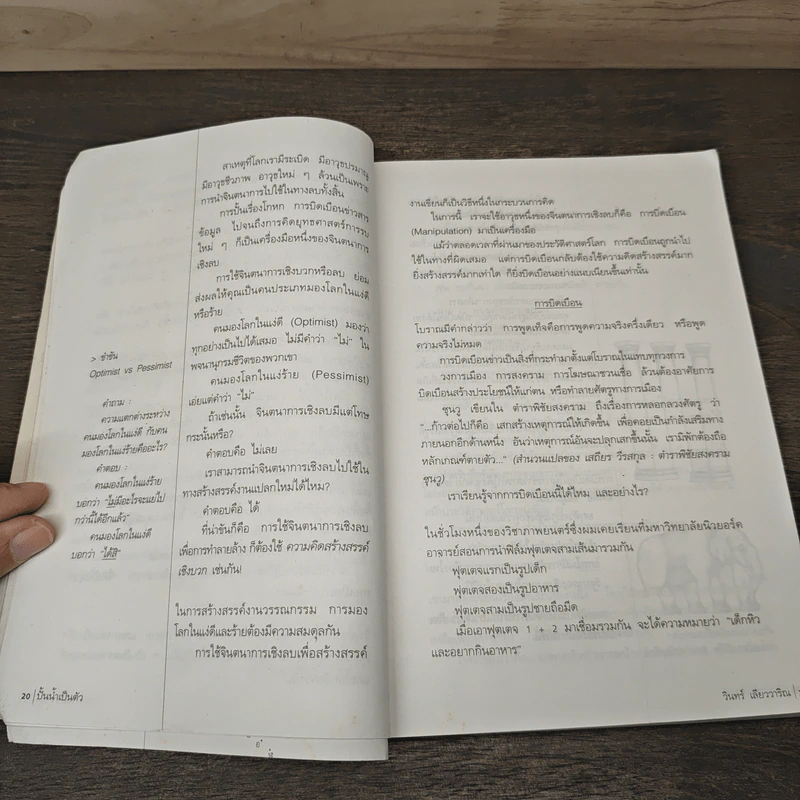 สาเหตุที่โลกเรามีระเบิด มีอาวุธปรมาณู
มีอาวุธชีวภาพ อาวุธใหม่ ๆ ล้วนเป็นเพราะ
การนำจินตนาการไปใช้ในทางลบทั้งสิ้น
การปั้นเรื่องโกหก การบิดเบือนข่าวสาร
ข้อมูล ไปจนถึงการคิดยุทธศาสตร์การรบ
ใหม่ ๆ ก็เป็นเครื่องมือหนึ่งของจินตนาการ
เชิงลบ
การใช้จินตนาการเชิงบวกหรือลบ ย่อม
ส่งผลให้คุณเป็นคนประเภทมองโลกในแง่ดี
หรือร้าย
คนมองโลกในแง่ดี (Optimist) มองว่า
ทุกอย่างเป็นไปได้เสมอ ไม่มีคำว่า “ไม่” ใน
พจนานุกรมชีวิตของพวกเขา
คนมองโลกในแง่ร้าย (Pessimist)
เอ่ยแต่คำว่า “ไม่”
ถ้าเช่นนั้น จินตนาการเชิงลบมีแต่โทษ
กระนั้นหรือ?
คำตอบคือ ไม่เลย
เราสามารถนำจินตนาการเชิงลบไปใช้ใน
ทางสร้างสรรค์งานแปลกใหม่ได้ไหม?
คำตอบคือ ได้
ที่น่าขันก็คือ การใช้จินตนาการเชิงลบ
เพื่อการทำลายล้าง ก็ต้องใช้ ความคิดสร้างสรรค์
เชิงบวก เช่นกัน!
ในการสร้างสรรค์งานวรรณกรรม การมอง
โลกในแง่ดีและร้ายต้องมีความสมดุลกัน
การใช้จินตนาการเชิงลบเพื่อสร้างสรรค์
> ขำขัน
Optimist vs Pessimist
คำถาม :
ความแตกต่างระหว่าง
คนมองโลกในแง่ดี กับคน
มองโลกในแง่ร้ายคืออะไร?
คำตอบ :
คนมองโลกในแง่ร้าย
บอกว่า “ไม่มีอะไรจะแย่ไป
กว่านี้ได้อีกแล้ว”
คนมองโลกในแง่ดี
บอกว่า “ได้สิ”
20 | ปั้นน้ำเป็นตัว
งานเขียนก็เป็นวิธีหนึ่งในกระบวนการคิด
ในการนี้ เราจะใช้อาวุธหนึ่งของจินตนาการเชิงลบก็คือ การบิดเบือน
(Manipulation) มาเป็นเครื่องมือ
แม้ว่าตลอดเวลาที่ผ่านมาของประวัติศาสตร์โลก การบิดเบือนถูกนำไป
ใช้ในทางที่ผิดเสมอ แต่การบิดเบือนกลับต้องใช้ความคิดสร้างสรรค์มาก
ยิ่งสร้างสรรค์มากเท่าใด ก็ยิ่งบิดเบือนอย่างแนบเนียนขึ้นเท่านั้น
การบิดเบือน
โบราณมีคำกล่าวว่า การพูดเท็จคือการพูดความจริงครึ่งเดียว หรือพูด
ความจริงไม่หมด
การบิดเบือนข่าวเป็นสิ่งที่กระทำมาตั้งแต่โบราณในแทบทุกวงการ
วงการเมือง การสงคราม การโฆษณาชวนเชื่อ ล้วนต้องอาศัยการ
บิดเบือนสร้างประโยชน์ให้แก่ตน หรือทำลายศัตรูทางการเมือง
ซุนวู เขียนใน ตำราพิชัยสงคราม ถึงเรื่องการหลอกลวงศัตรู ว่า
“...ก้าวต่อไปก็คือ เสกสร้างเหตุการณ์ให้เกิดขึ้น เพื่อคอยเป็นกำลังเสริมทาง
ภายนอกอีกด้านหนึ่ง อันว่าเหตุการณ์อันจะปลุกเสกขึ้นนั้น เรามิพักต้องถือ
หลักเกณฑ์ตายตัว...” (สำนวนแปลของ เสถียร วีรสกุล : ตำราพิชัยสงคราม
ซุนวู)
เราเรียนรู้จากการบิดเบือนนี้ได้ไหม และอย่างไร?
ในชั่วโมงหนึ่งของวิชาภาพยนตร์ซึ่งผมเคยเรียนที่มหาวิทยาลัยนิวยอร์ค
อาจารย์สอนการนำฟิล์มฟุตเตจสามเส้นมารวมกัน
ฟุตเตจแรกเป็นรูปเด็ก
ฟุตเตจสองเป็นรูปอาหาร
ฟุตเตจสามเป็นรูปชายถือมีด
เมื่อเอาฟุตเตจ 1 + 2 มาเชื่อมรวมกัน จะได้ความหมายว่า “เด็กหิว
และอยากกินอาหาร”
วินทร์ เลียววาริณ |